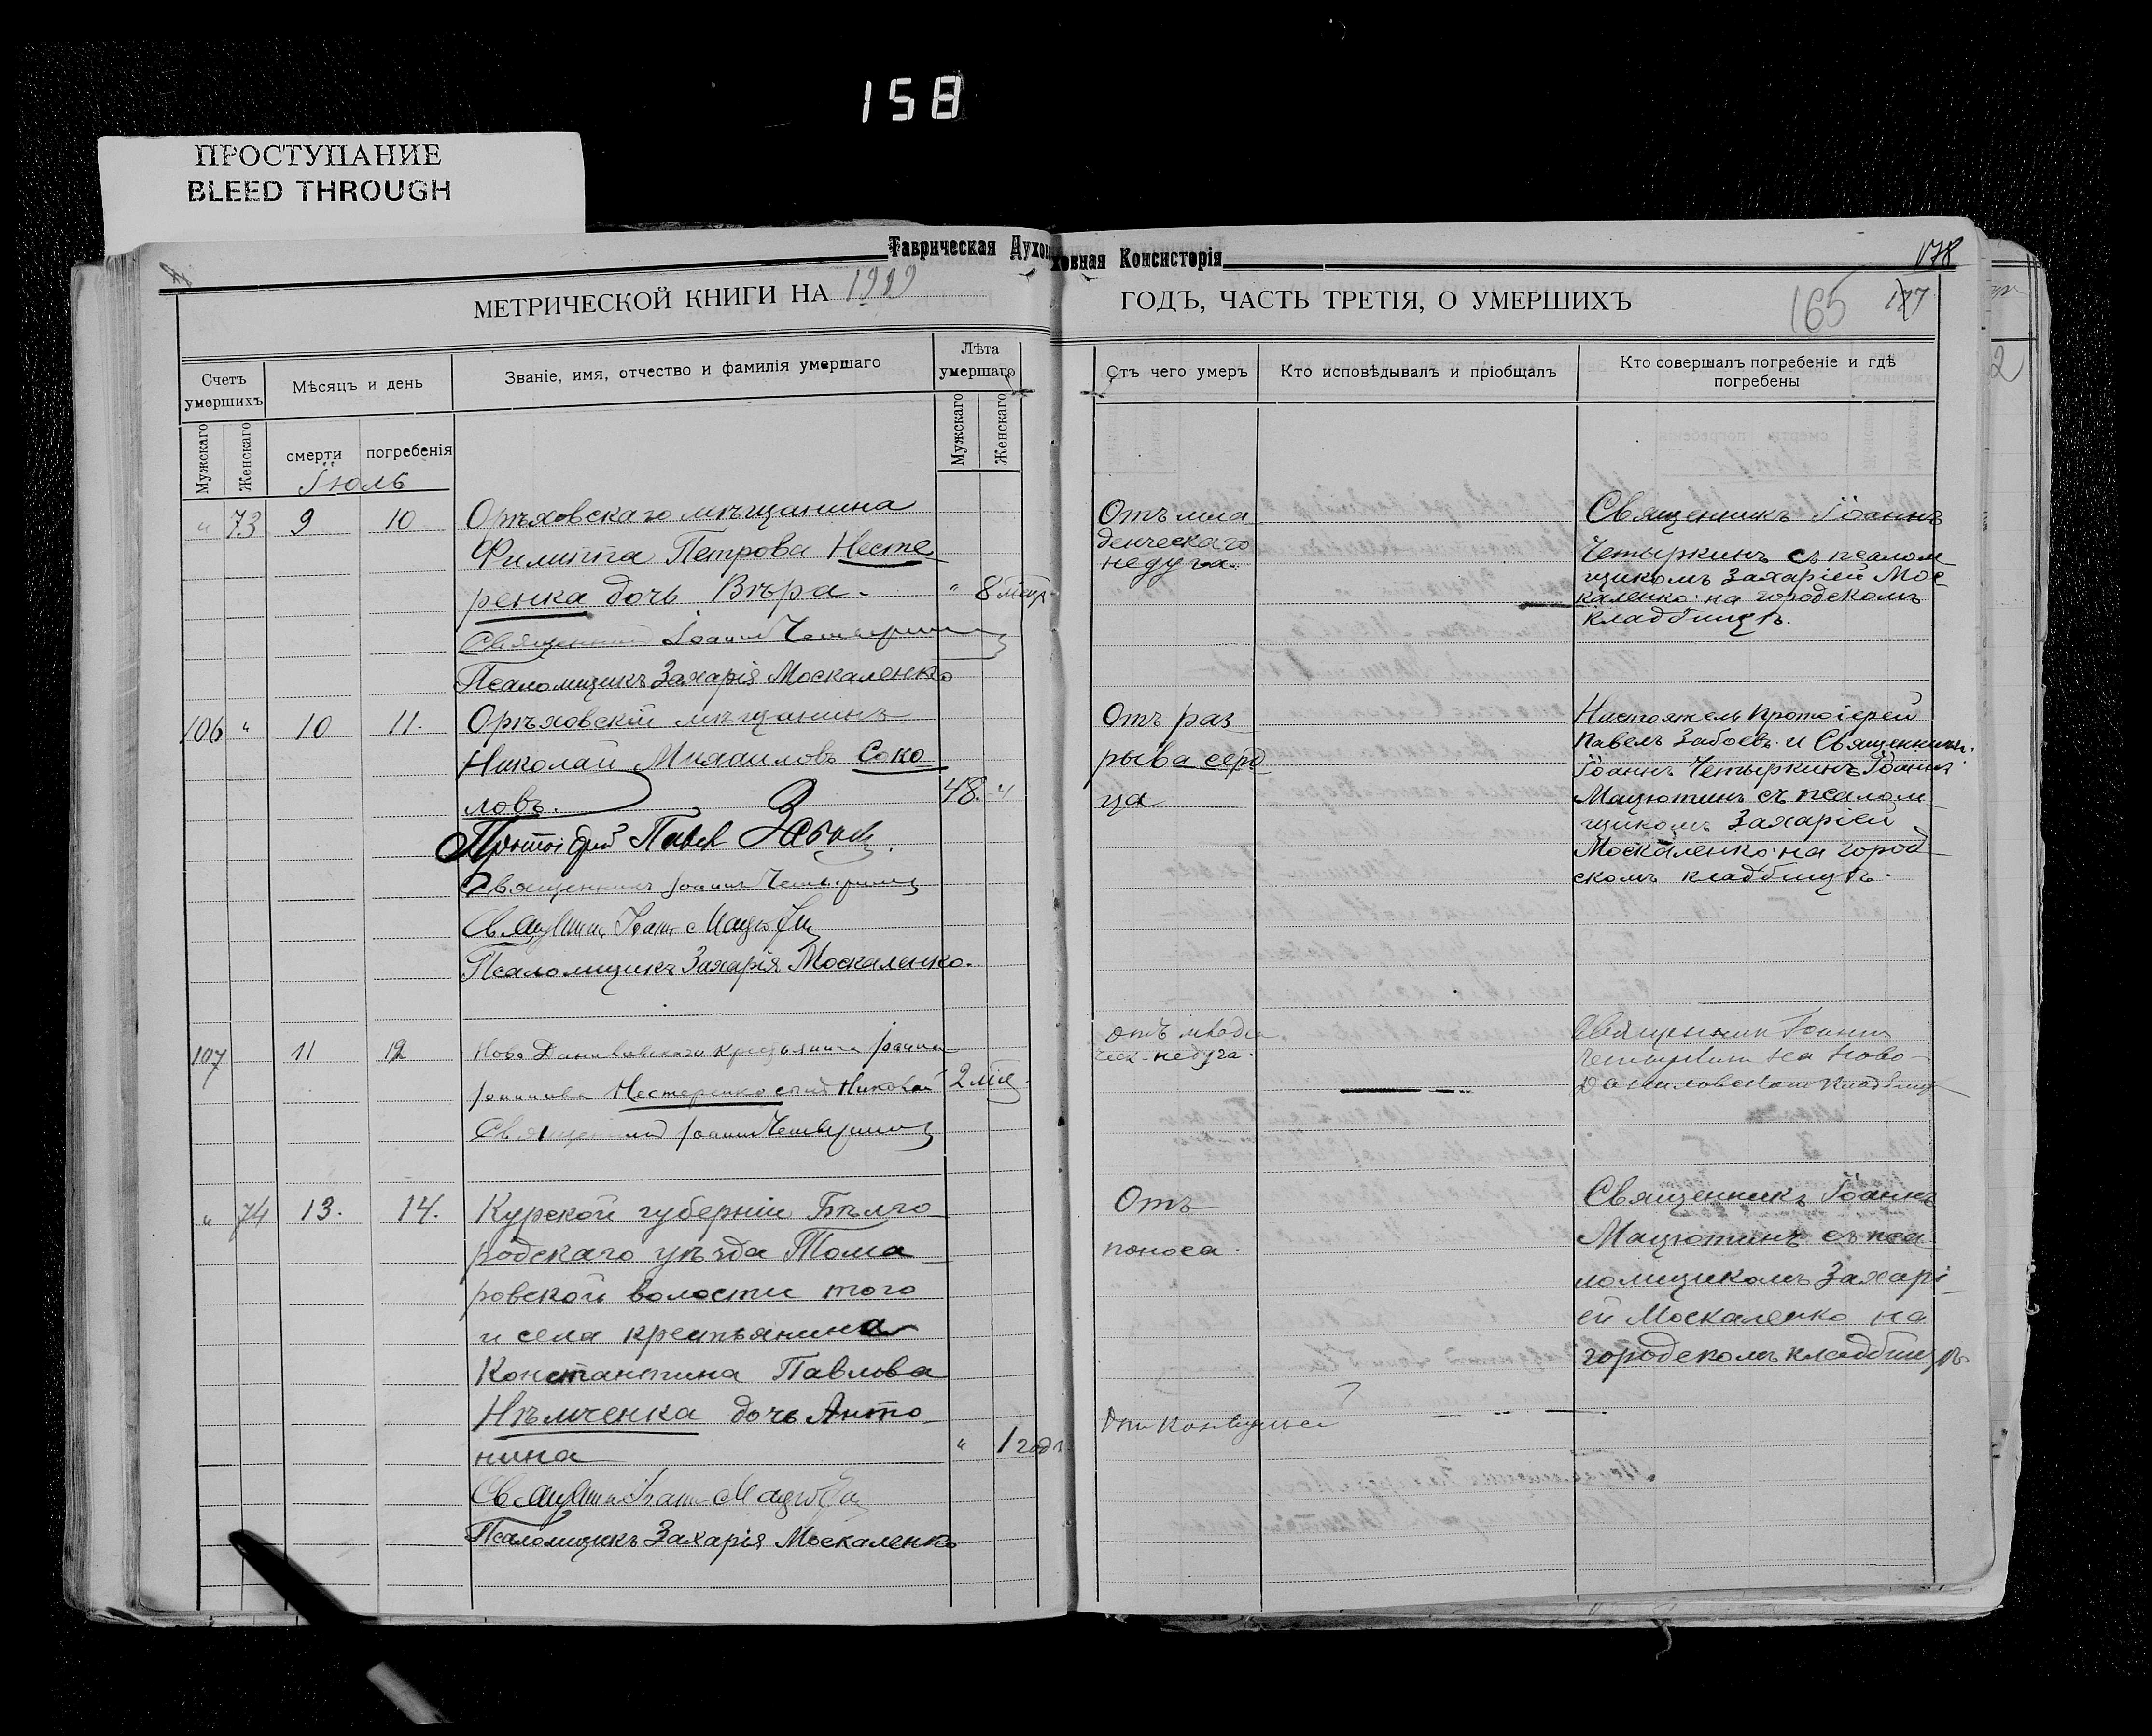 158
ПРОСТУПАНИЕ
BLEED THROUGH
Таврическая Духовная Консисторія
178
МЕТРИЧЕСКОЙ КНИГИ НА 1909 ГОДЪ, ЧАСТЬ ТРЕТІЯ, О УМЕРШИХЪ
165
177
Счетъ умершихъ
Мѣсяцъ и день
Званіе, имя, отчество и фамилія умершаго
Лѣта умершаго
Отъ чего умеръ
Кто исповѣдывалъ и пріобщалъ
Кто совершалъ погребеніе и гдѣ погребены
Мужскаго
Женскаго
смерти
погребенія
Мужскаго
Женскаго
Іюль
" 73 9 10
Орѣховскаго мѣщанина
Филиппа Петрова Несте
ренка дочь Вѣра.
" 8 мѣсяц.
Священникъ Іоаннъ Четыркинъ
Псаломщикъ Захарія Москаленко
Отъ мла
денческаго
недуга.
Священникъ Іоаннъ
Четыркинъ съ псалом
щикомъ Захаріей Мос
каленко на городскомъ
кладбищѣ.
106 " 10 11.
Орѣховскій мѣщанинъ
Николай Михаиловъ Соко
ловъ.
48. "
Протоіерей Павелъ Забоевъ
Священникъ Іоаннъ Четыркинъ
Священникъ Іоаннъ Мацютинъ
Псаломщикъ Захарія Москаленко.
Отъ раз
рыва серд
ца
Настоятель протоіерей
Павелъ Забоевъ и Священники:
Іоаннъ Четыркинъ Іоаннъ
Мацютинъ съ псалом
щикомъ Захаріей
Москаленко на город
скомъ кладбищѣ.
107 11 12
Ново Даниловскаго крестьянина Іоанна
Іоаннова Нестеренко сынъ Николай
2 мѣс.
Священникъ Іоаннъ Четыркинъ
отъ младен
ческ. недуга.
Священникъ Іоаннъ
Четыркинъ на Ново-
Даниловскомъ кладбищѣ
" 74 13. 14.
Курской губерніи Бѣлго
родскаго уѣзда Тома
ровской волости того
и села крестьянина
Константина Павлова
Нѣмченка дочь Анто
нина
" 1 годъ.
Священникъ Іоаннъ Мацютинъ
Псаломщикъ Захарія Москаленко
Отъ
поноса.
Священникъ Іоаннъ
Мацютинъ съ пса
ломщикомъ Захарі
ей Москаленко на
городскомъ кладбищѣ
2